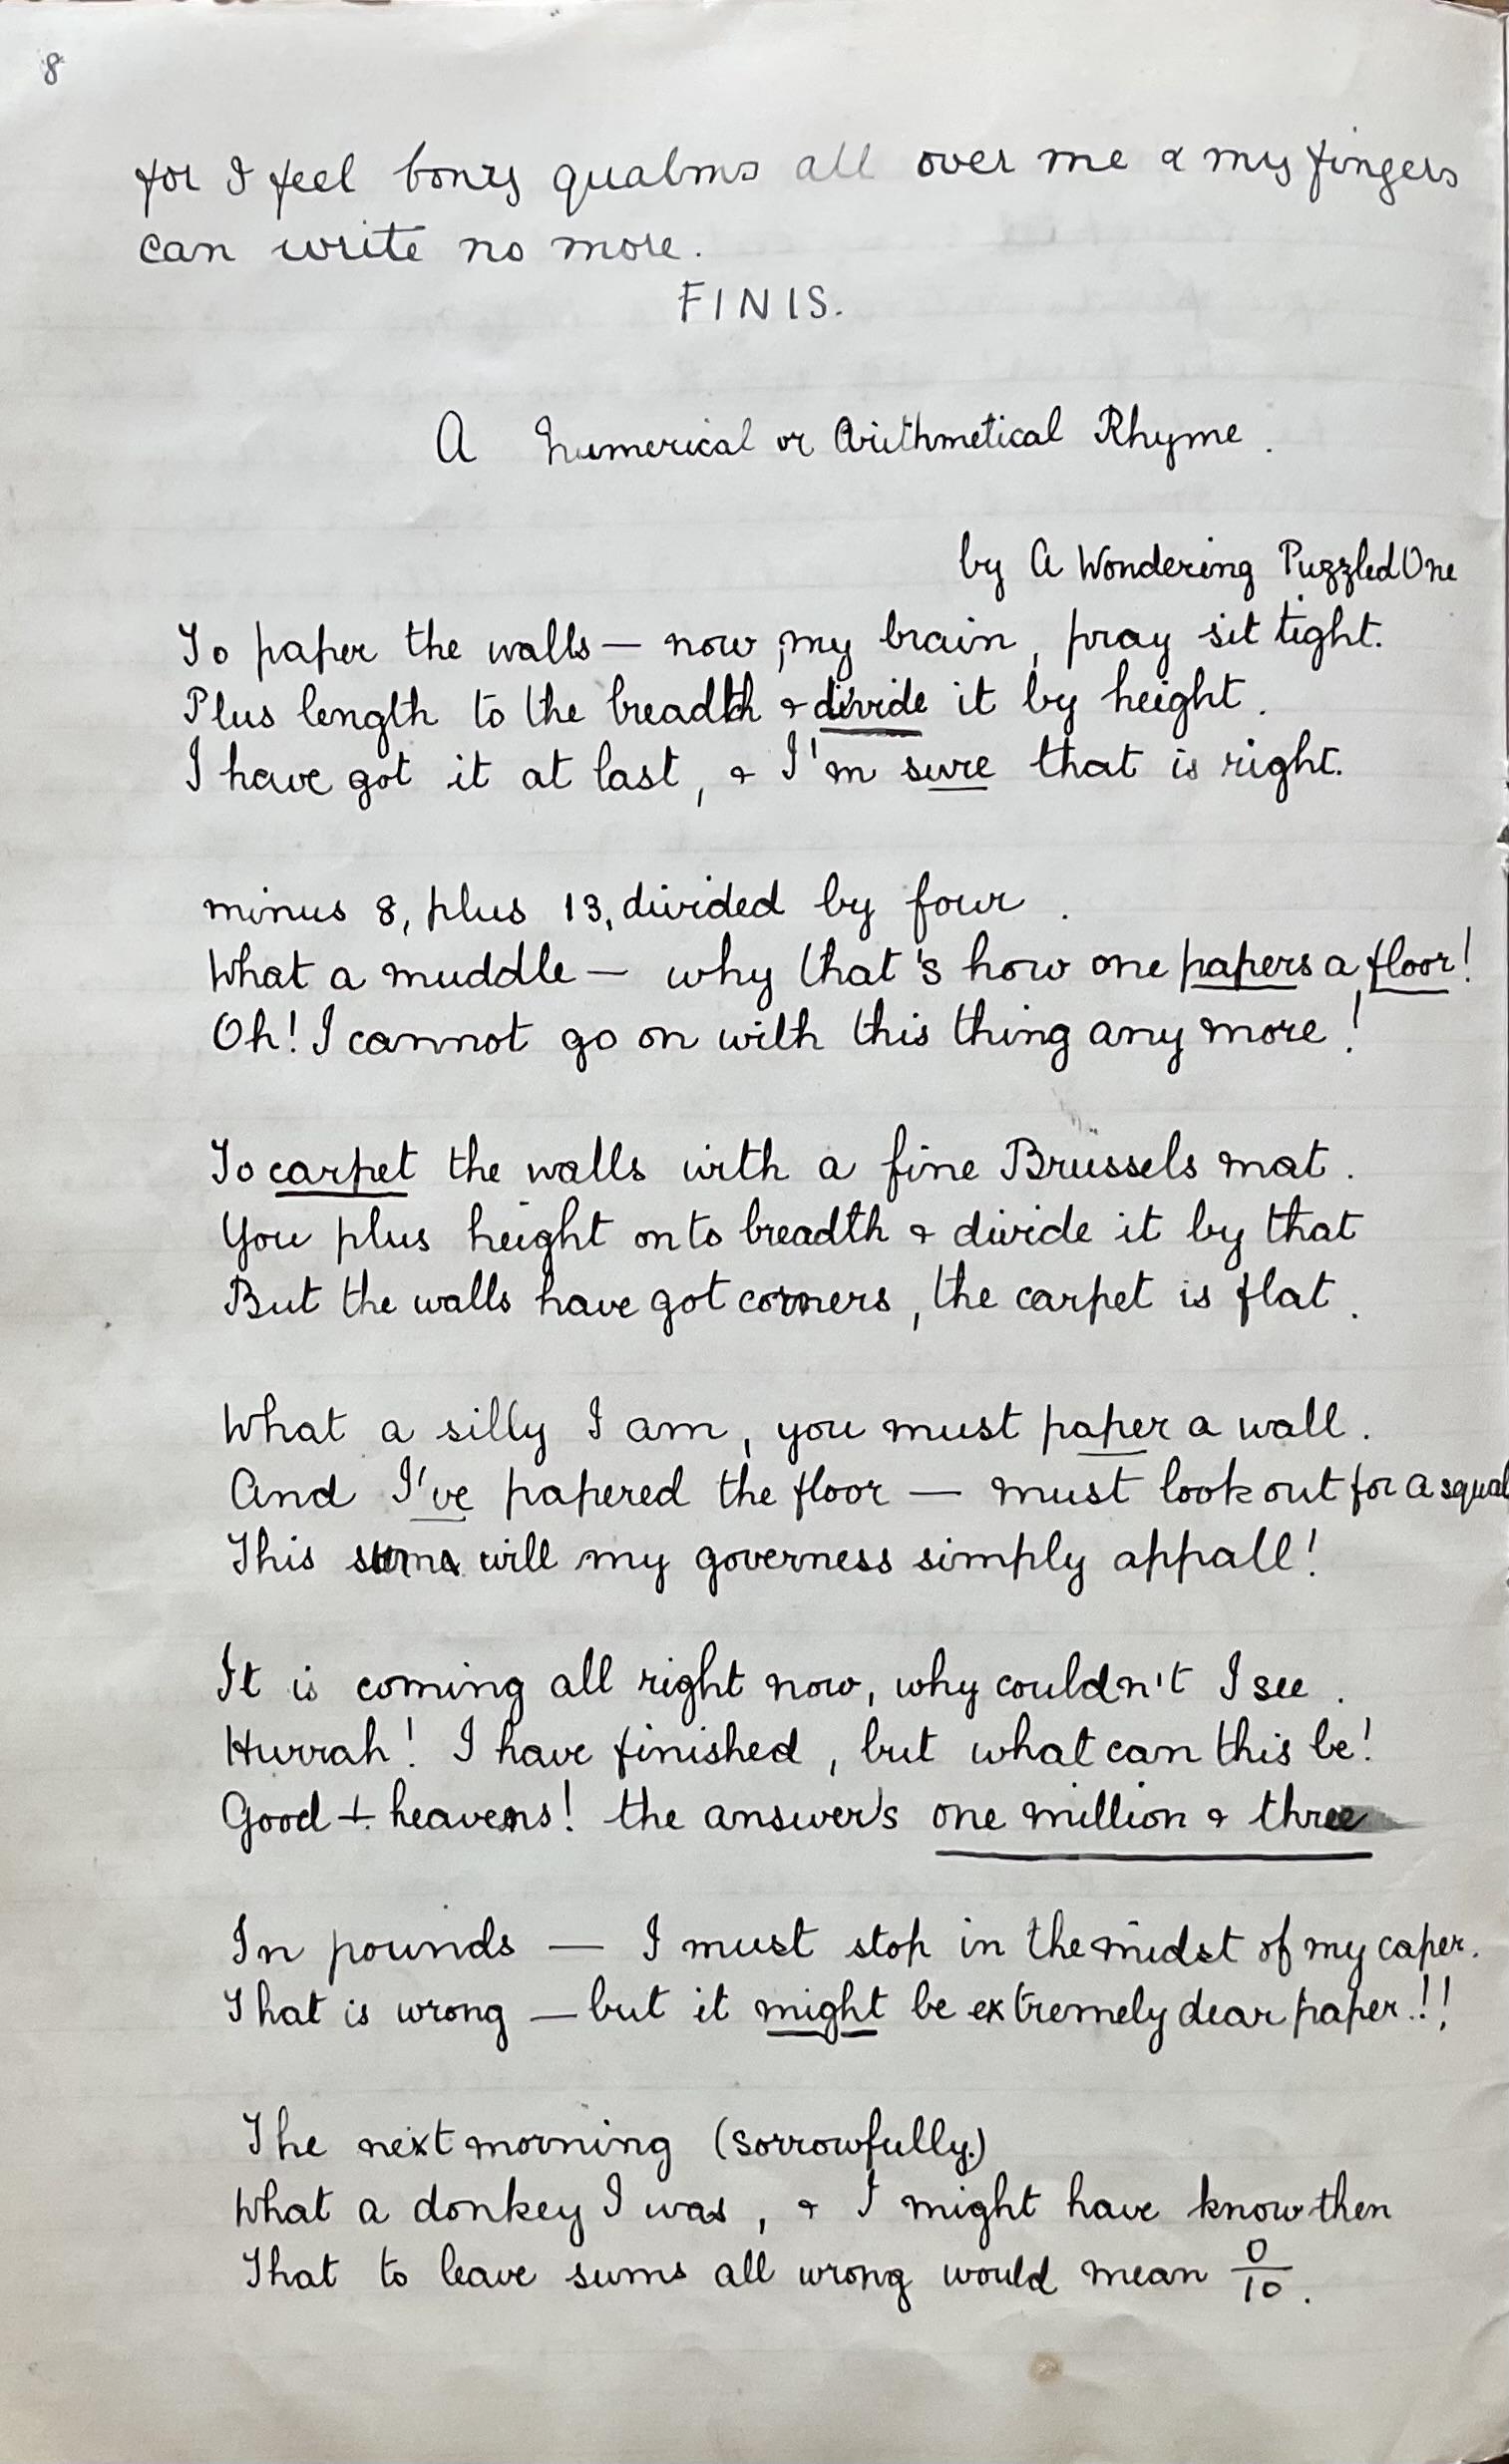 8
for I feel bony qualms all over me & my fingers
can write no more.
FINIS.
A Numerical or Arithmetical Rhyme.
by A Wondering Puzzled One
To paper the walls — now, my brain, pray sit tight.
Plus length to the breadth & divide it by height.
I have got it at last, & I'm sure that is right.
minus 8, plus 13, divided by four.
What a muddle — why that's how one papers a floor!
Oh! I cannot go on with this thing any more!
To carpet the walls with a fine Brussels mat.
You plus height onto breadth & divide it by that
But the walls have got corners, the carpet is flat.
What a silly I am, you must paper a wall.
And I've papered the floor — must look out for a squal
This sum will my governess simply appall!
It is coming all right now, why couldn't I see.
Hurrah! I have finished, but what can this be!
Good heavens! the answer's one million & three
In pounds — I must stop in the midst of my caper.
That is wrong — but it might be extremely dear paper!!!
The next morning (sorrowfully.)
What a donkey I was, & I might have know then
That to leave sums all wrong would mean 0/10.